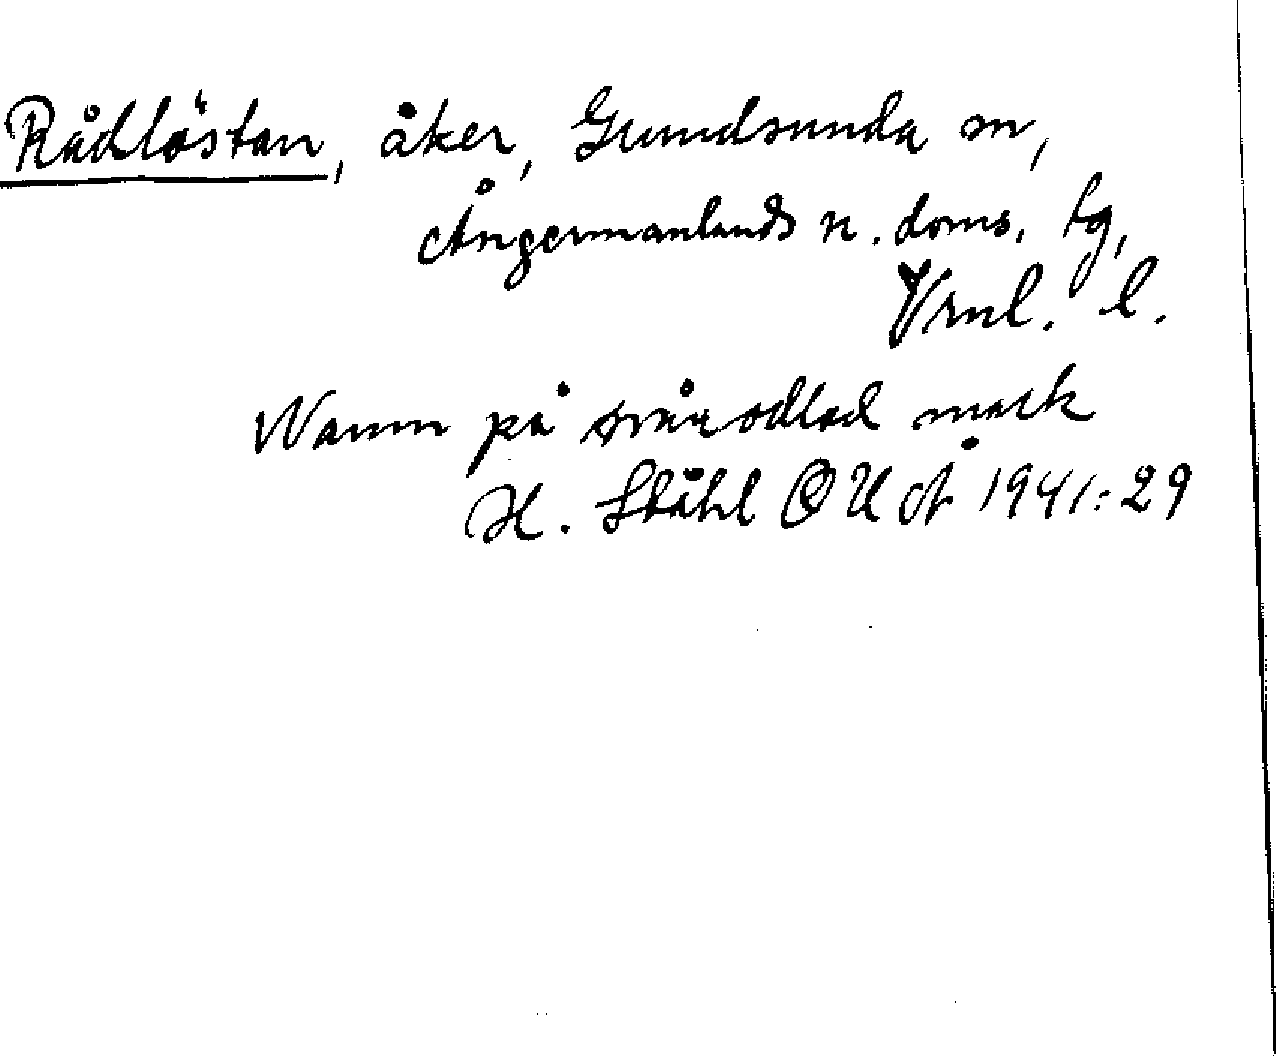 Rådlöstan, åker, Grundsunda sn,
Ångermanlands n. doms. tg,
Vrnl. l.
Namn på svårodlad mark
H. Ståhl OUÅ 1941:29